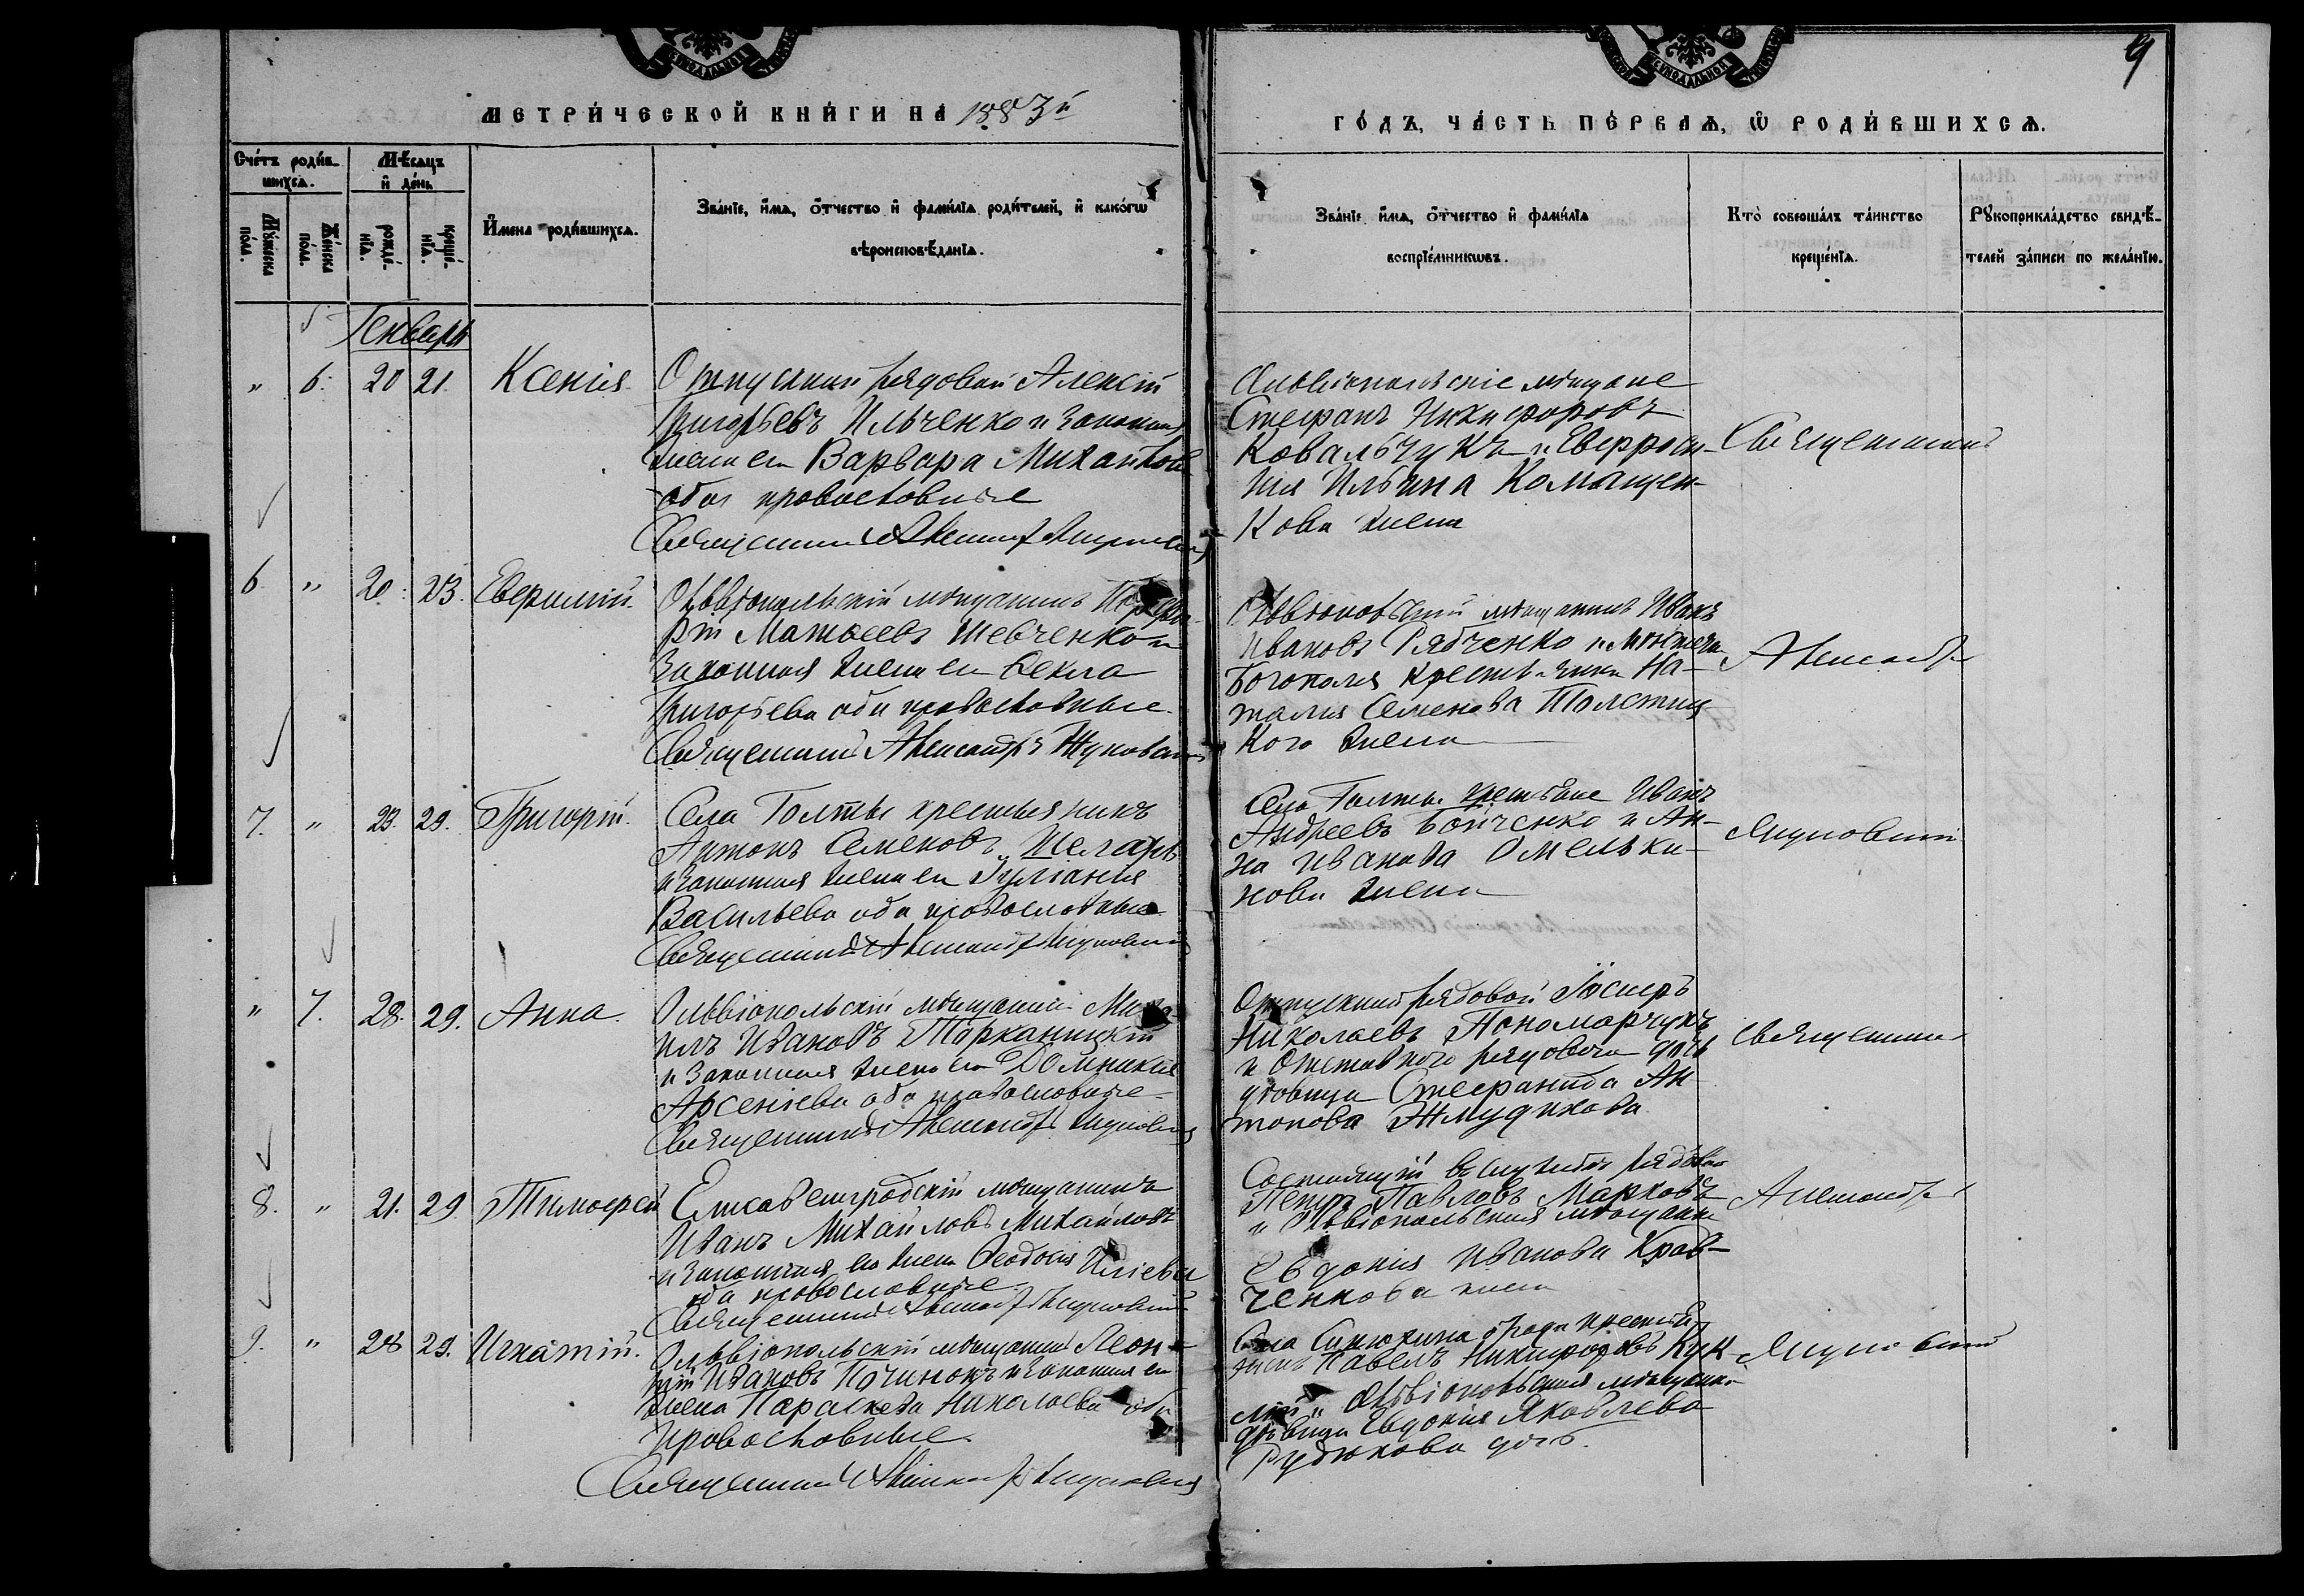 9
МЕТРИ́ЧЕСКОЙ КНИ́ГИ НА 1883й
ГО́ДЪ, ЧА́СТЬ ПЕ́РВАЯ, Ѿ РОДИ́ВШИХСЯ.
Сче́тъ роди́в-
шихся.
Мѣ́сяцъ
и де́нь
Му́жеска по́ла.
Же́нска по́ла.
рожде́-нїя.
креще́-нїя.
И҆мена роди́вшихся.
Зва́нїе, и҆мя, о҆тчество и҆ фами́лїа роди́телей, и҆ како́гѡ
вѣроисповѣ́данїа.
Зва́нїе и҆мя, о҆тчество и҆ фами́лїа
воспрїе́мникѡвъ.
Кто̀ соверша́лъ та́инство
креще́нїя.
Рꙋкоприкла́дство свидѣ́-
телей за́писи по жела́нїю.
Генварь
" 6. 20 21. Ксенія.
Отпускный рядовый Алексій
Григорьевъ Ильченко и законная
жена его Варвара Михайлова
оба православные
Священникъ Александръ
Ольвіопольскіе мѣщане
Стефанъ Никифоровъ
Ковальчукъ и Евфроси-
нія Ильина Комащен-
кова жена
Священникъ
6. " 20. 23. Евфимій.
Ольвіопольскій мѣщанинъ
рій Матѳеевъ Шевченко и
законная жена его Ѳекла
Григорьева оба православные.
Священникъ Александръ
Ольвіопольскій мѣщанинъ Иванъ
Ивановъ Рябченко и мѣстечка
Богополя крестьянина На-
талія Семенова Толстиц
кого жена
Александръ
7. " 23. 29. Григорій.
Села Голты крестьянинъ
Антонъ Семеновъ Шеларь
и законная жена его Іуліанія
Васильева оба православные
Священникъ Александръ
Села Голты крестьяне Иванъ
Андреевъ Бойченко и Ан-
на Иванова Омельки-
нова жена
" 7. 28. 29. Анна.
Ольвіопольскій мѣщанинъ Миха-
илъ Ивановъ Торканицкій
и законная жена его Домникія
Арсеніева оба православные
Священникъ Александръ
Отпускный рядовой Іосифъ
Николаевъ Пономарчукъ
и отставного рядового дочь
дѣвица Стефанида Ан-
тонова Жмудикова
Священникъ
8. " 21. 29. Тимоѳей
Елисаветградскій мѣщанинъ
Иванъ Михайловъ Михайловъ
и законная его жена Ѳеодосія Иліева
оба православные.
Священникъ Александръ
Состоящій въ службѣ рядовой
Петръ Павловъ Марковъ
и Ольвіопольская мѣщанка
Евдокія Иванова Крав-
ченкова жена
Александръ
9. " 28 29. Игнатій.
Ольвіопольскій мѣщанинъ Леон-
тій Ивановъ Починокъ и законная его
жена Параскева Николаева оба
православные.
Священникъ Александръ
Села Синюхина брода крестья
нинъ Павелъ Никифоровъ Кук
Ольвіопольская мѣщанка
дѣвица Евдокія Яковлева
Рудюкова дочь.